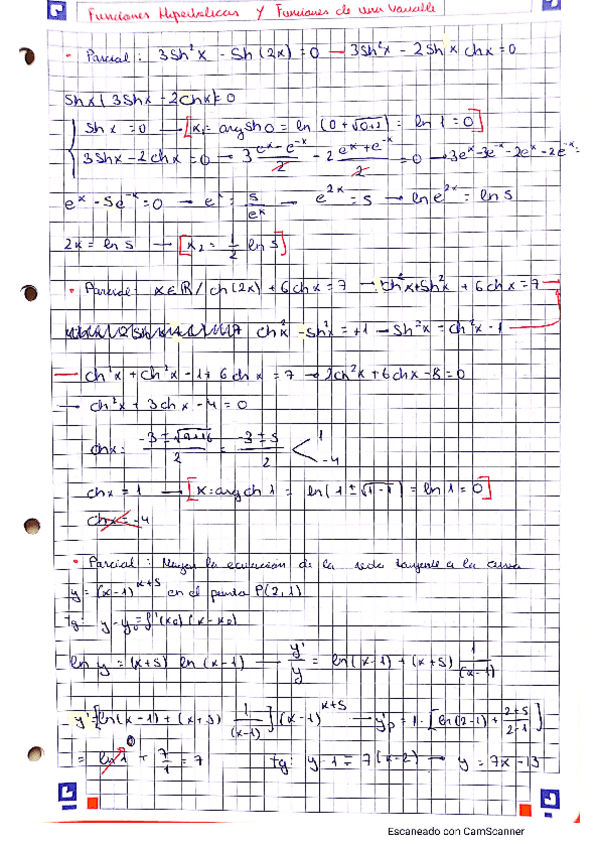 Funciones Hiperbólicas y Funciones de una Variable
• Parcial: 3Sh²x - Sh(2x) = 0 → 3Sh²x - 2Shx chx = 0
Shx(3Shx - 2Chx) = 0
Shx = 0 → [x₁ = argsh 0 = ln(0+√(0+1)) = ln 1 = 0]
3Shx - 2chx = 0 → 3 (eˣ-e⁻ˣ)/2 - 2 (eˣ+e⁻ˣ)/2 = 0 → 3eˣ-3e⁻ˣ-2eˣ-2e⁻ˣ=
eˣ - 5e⁻ˣ = 0 → eˣ = 5/eˣ → e²ˣ = 5 → ln e²ˣ = ln 5
2x = ln 5 → [x₂ = 1/2 ln 5]
• Parcial: x∈ℝ / ch(2x) + 6chx = 7 → ch²x+sh²x + 6chx = 7
ch²x - sh²x = +1 → sh²x = ch²x - 1
ch²x + ch²x - 1 + 6chx = 7 → 2ch²x + 6chx - 8 = 0
→ ch²x + 3chx - 4 = 0
chx = (-3 ± √(9+16))/2 = (-3 ± 5)/2 < 1 -4
chx = 1 → [x = argch 1 = ln(1 ± √(1-1)) = ln 1 = 0]
chx = -4
• Parcial: la ecuación de la recta tangente a la curva
y = (x-1)ˣ⁺⁵ en el punto P(2,1)
tg: y-y₀ = f'(x₀)(x-x₀)
ln y = (x+5) ln(x-1) → y'/y = ln(x-1) + (x+5) 1/(x-1)
y' = [ln(x-1) + (x+5) 1/(x-1)] (x-1)ˣ⁺⁵ → y'p = 1 · [ln(2-1) + (2+5)/(2-1)]
= ln 1 + 7/1 = 7 tg: y-1 = 7(x-2) → y = 7x-13
Escaneado con CamScanner